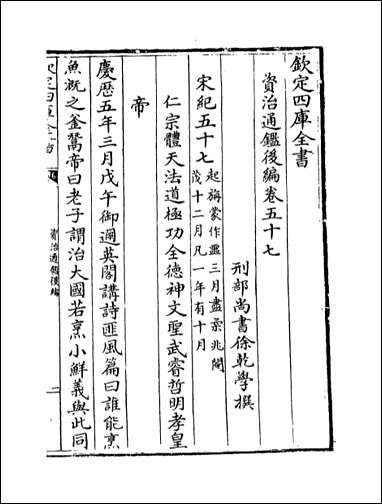 欽定四庫全書
資治通鑑後編卷五十七
刑部尚書徐乾學撰
宋紀五十七起旃蒙作噩三月盡柔兆閹
茂十二月凡一年有十月
仁宗體天法道極功全德神文聖武睿哲明孝皇
帝
慶歷五年三月戊午御邇英閣講詩匪風篇曰誰能烹
魚溉之釜鬵帝曰老子謂治大國若烹小鮮義與此同
欽定四庫全書
資治通鑑後編
一